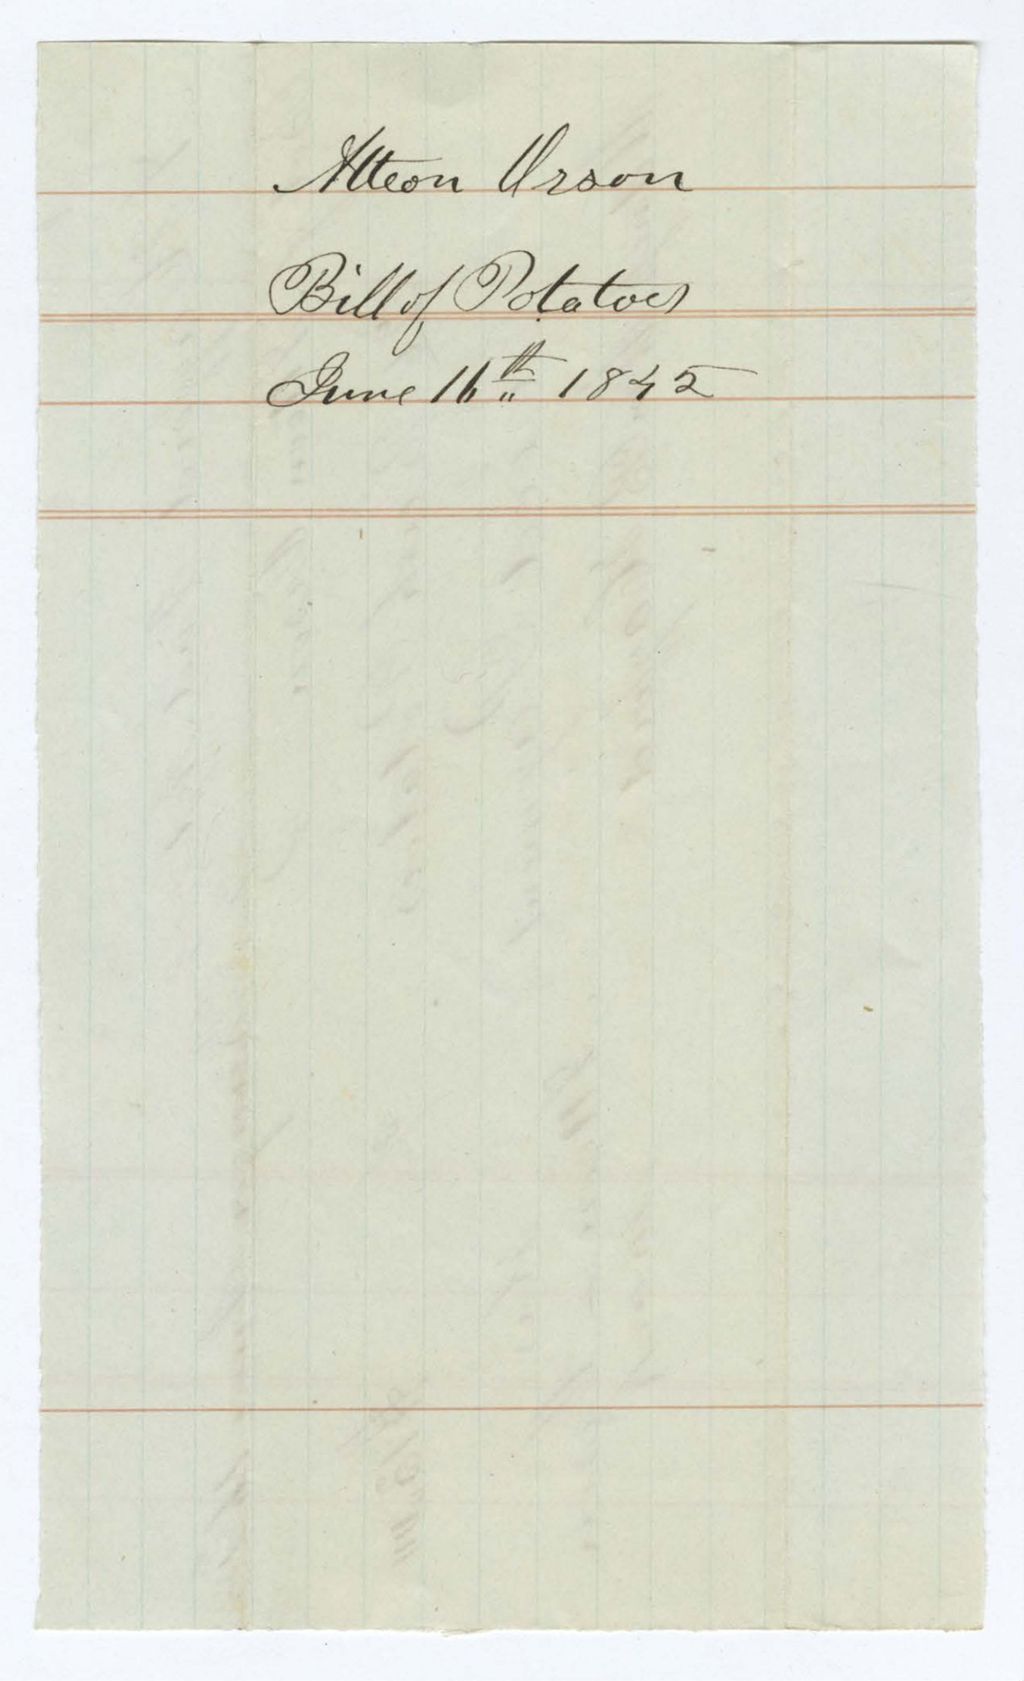 Atteon Orson
Bill of Potatoes
June 16th 1842